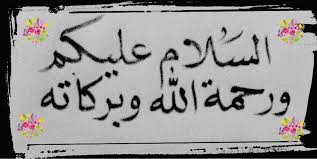 السَلام عليكم
ورحمة الله وبركاته